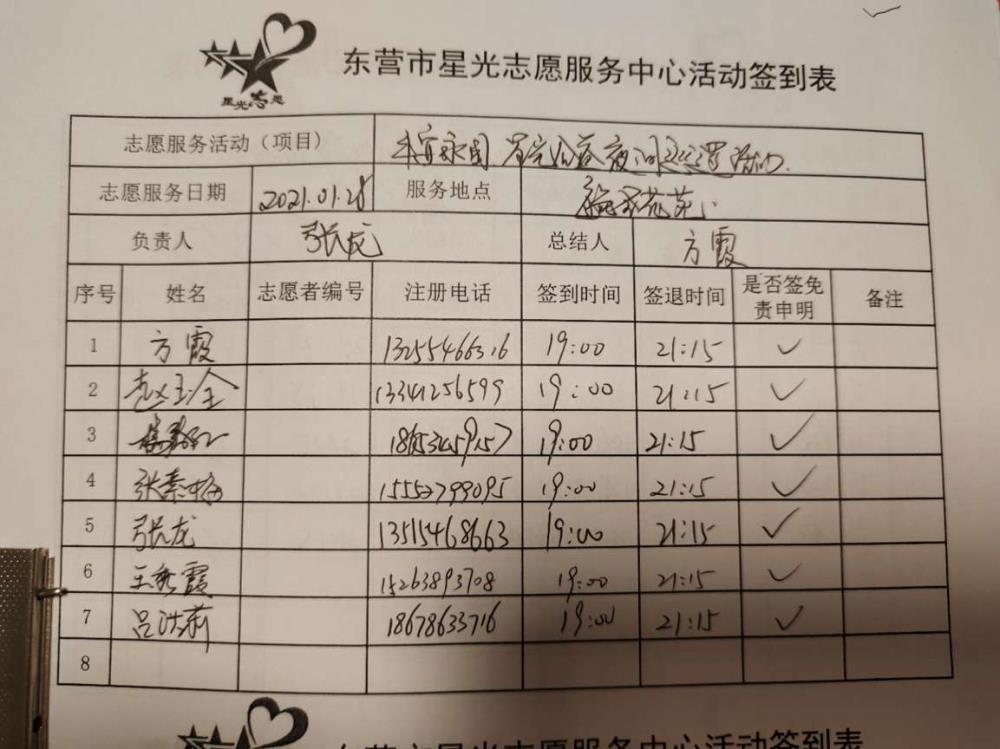 星光志愿
东营市星光志愿服务中心活动签到表
志愿服务活动（项目）
志愿服务日期 2021.01.28 服务地点
负责人 张龙 总结人 方霞
序号 姓名 志愿者编号 注册电话 签到时间 签退时间 是否签免责申明 备注
1 方霞 13255466316 19:00 21:15 ✓
2 赵玉全 13341256599 19:00 21:15 ✓
3 19:00 21:15 ✓
4 张素梅 15552799095 19:00 21:15 ✓
5 张龙 13515468663 19:00 21:15 ✓
6 王秀霞 15263893708 19:00 21:15 ✓
7 吕洪莉 18678633716 19:00 21:15 ✓
8
东营市星光志愿服务中心活动签到表